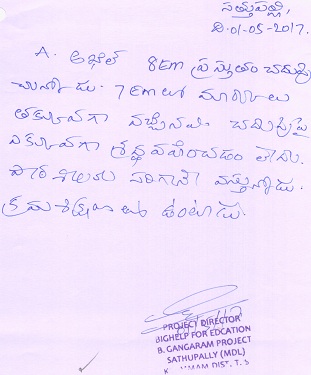 సత్తుపల్లి,
ది.01-05-2017.
A. అఖిల్ 8Em ప్రస్తుతం చదువు
చున్నాడు. 7Emలో మార్కులు
తక్కువగా వచ్చినవి. చదువుపై
ఎక్కువగా శ్రద్ధ వహించడం లేదు.
సరిగానే వస్తున్నాడు.
క్రమశిక్షణతో ఉంటాడు.
PROJECT DIRECTOR
BIGHELP FOR EDCATION
B. GANGARAM PROJECT
SATHUPALLY (MDL)
DIST. T.S